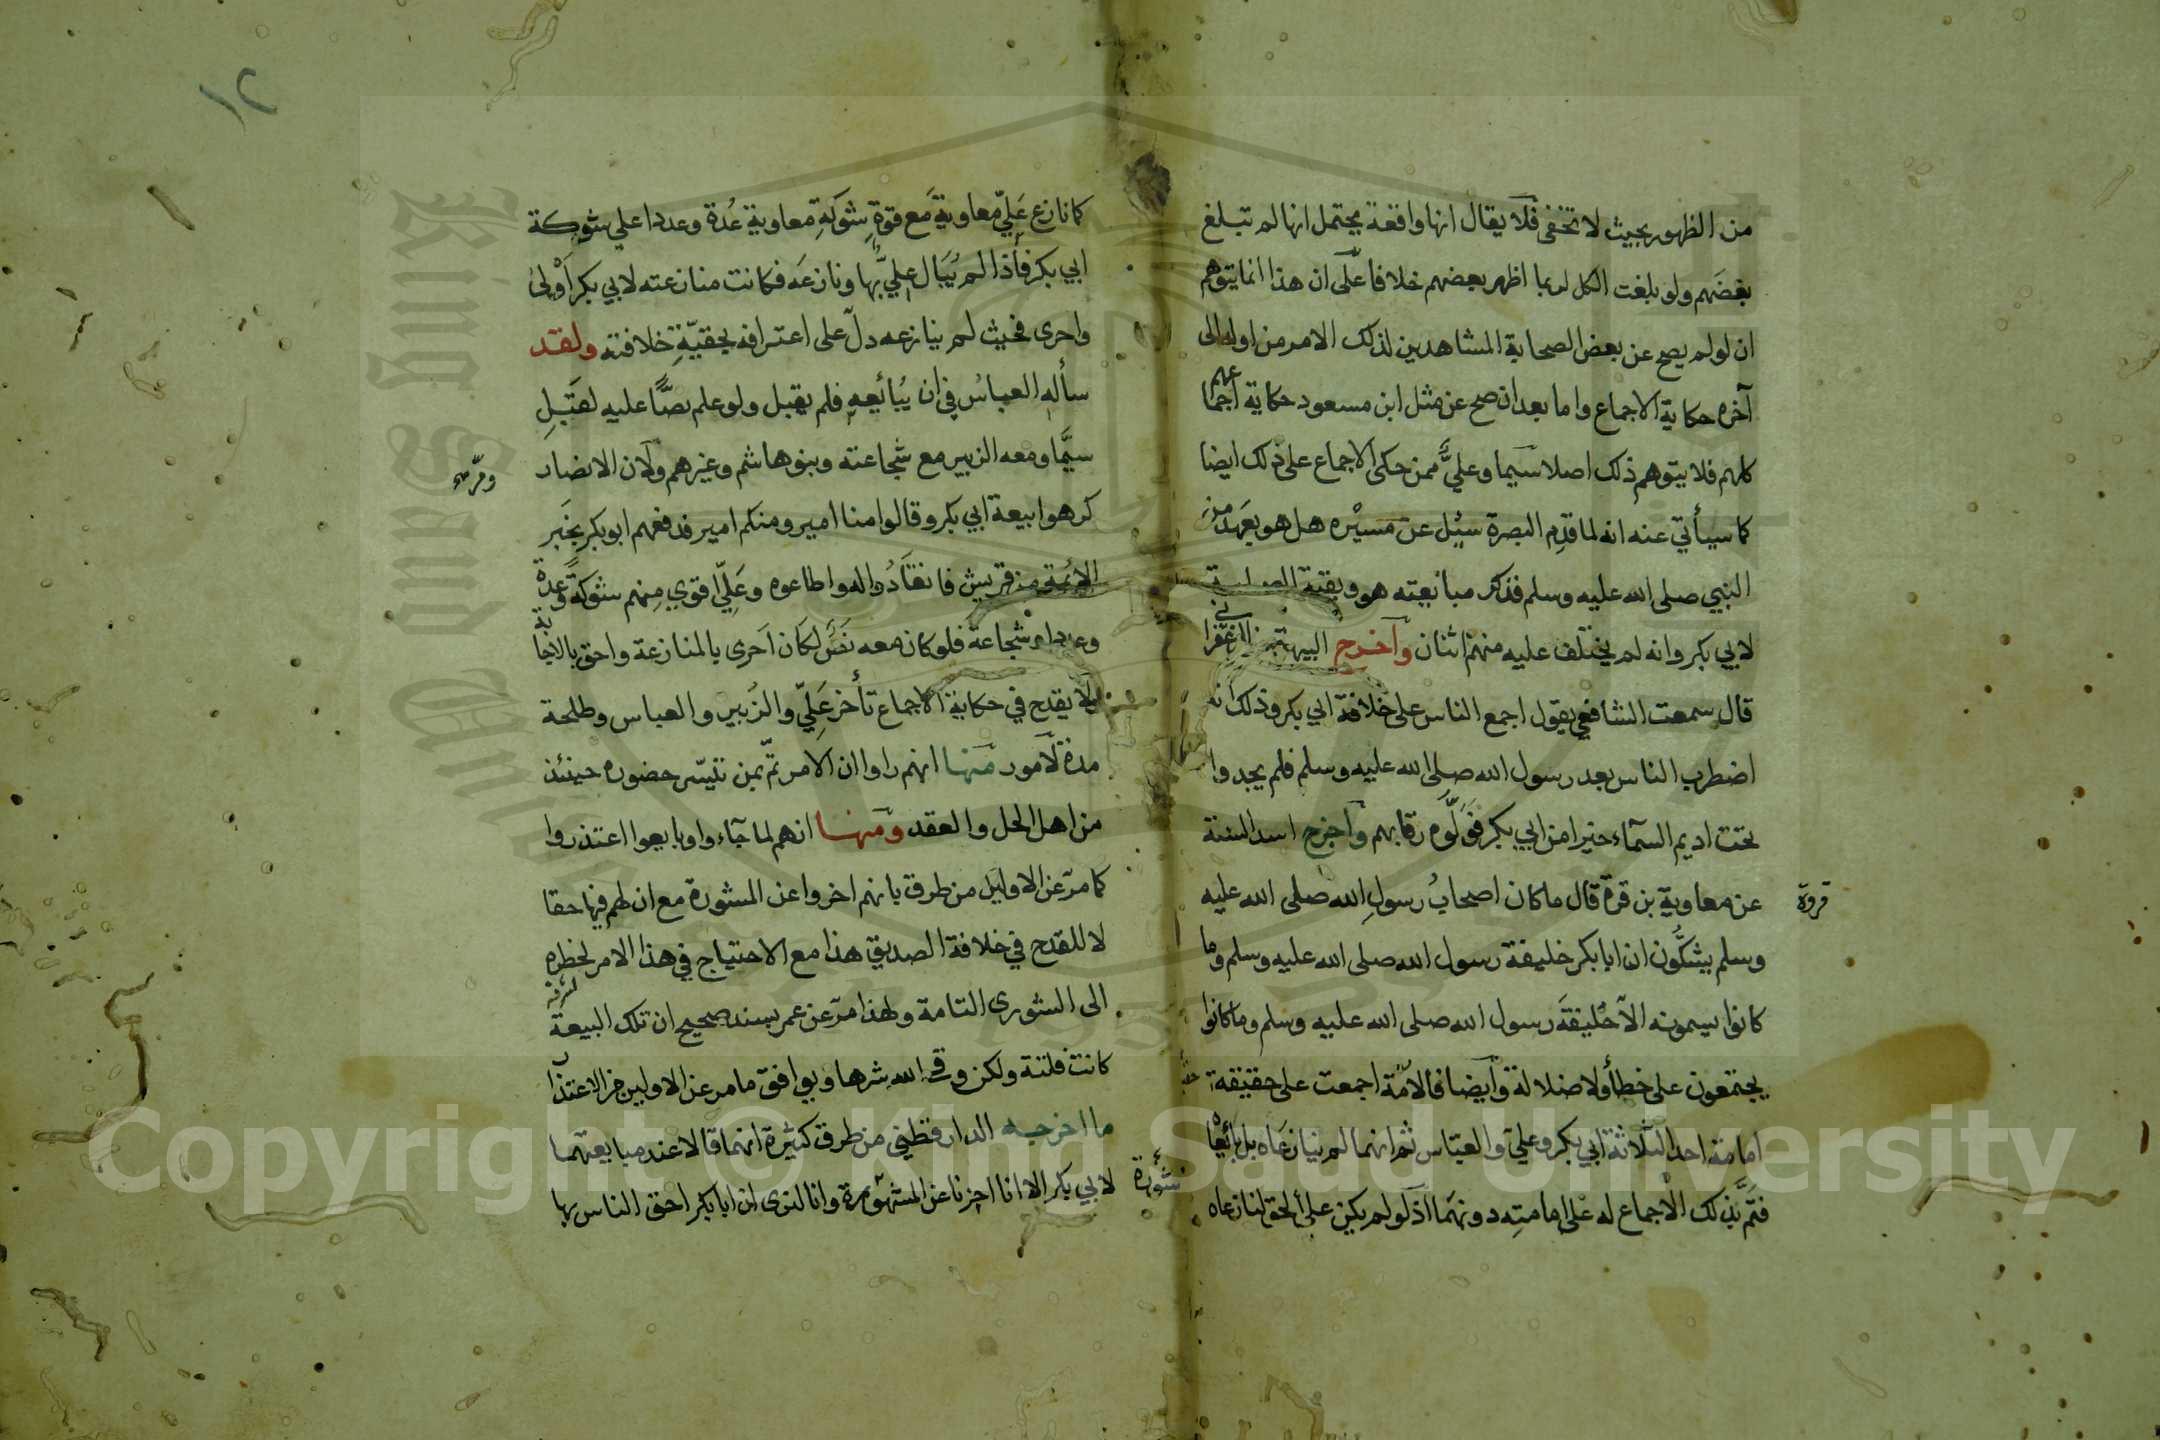 من الظهور بحيث لا تخفى فلا يقال انها واقعة يحتمل انها لم تبلغ
بعضهم ولو بلغت الكل لربما اظهر بعضهم خلافا على ان هذا انما يتوهم
ان لو لم يصح عن بعض الصحابة المشاهدين لذلك الامر من اوله الى
آخره حكاية الاجماع واما بعد ان صح عن مثل ابن مسعود حكاية اجماعهم
كلهم فلا يتوهم ذلك اصلا سيما وعليٌّ ممن حكى الاجماع على ذلك ايضا
كما سيأتي عنه انه لما قدم البصرة سئل عن مسيره هل هو بعهد من
النبي صلى الله عليه وسلم فذكر مبايعته هو وبقية الصحابة
لابي بكر وانه لم يختلف عليه منهم اثنان وآخرج البيهقي عن الزعفراني
قال سمعت الشافعي يقول اجمع الناس على خلافة ابي بكر وذلك انه
اضطرب الناس بعد رسول الله صلى الله عليه وسلم فلم يجدوا
تحت اديم السماء خيرا من ابي بكر فولّوه رقابهم وآخرج اسد السنة
عن معاوية بن قرة قال ما كان اصحاب رسول الله صلى الله عليه
قروة
وسلم يشكّون ان ابا بكر خليفة رسول الله صلى الله عليه وسلم وما
كانوا يسمونه الاّ خليفة رسول الله صلى الله عليه وسلم وما كانوا
يجتمعون على خطأ ولا ضلالة وآيضا فالامّة اجمعت على حقيقة
امامة احد الثلاثة ابي بكر وعليّ والعبّاس ثم انهما لم ينازعاه بل بايعاه
فتمّ بذلك الاجماع له على امامته دونهما اذ لو لم يكن على الحق لنازعاه
١٢
كما نازع عليّ معاوية مع قوة شوكة معاوية عُدة وعددا على شوكة
ابي بكر فأذا لم يُبال عليٌّ بها ونازعه فكانت منازعته لابي بكر أولى
واحرى فحيث لم ينازعه دلّ على اعترافه بحقيّة خلافته ولقد
سأله العباس في ان يُبائعه فلم يقبل ولو علم نصًّا عليه لقبل
سيّما ومعه الزبير مع شجاعته وبنو هاشم وغيرهم ولان الانصار
ومرّ
كرهوا بيعة ابي بكر وقالوا منا امير ومنكم امير فدفعهم ابو بكر بخبر
الائمة من قريش فانقادُوا له واطاعوه وعليّ اقوى منهم شوكة وعدّة
وعددا وشجاعة فلو كان معه نصٌّ لكان أحرى بالمنازعة واحق بالاجابة
ولا يقدح في حكاية الاجماع تأخر عليّ والزُبير والعباس وطلحة
مدة لامور منها انهم راوا ان الامر تمّ بمن تيسّر حضوره حينئذ
من اهل الحل والعقد ومنها انهم لما جآءوا وبايعوا اعتذروا
كما مرّ عن الاولين من طرق بانهم اخروا عن المشورة مع ان لهم فيها حقا
لا للقدح في خلافة الصديق هذا مع الاحتياج في هذا الامر لخطره
الى الشورى التامة ولهذا مرّ عن عمر بسند صحيح ان تلك البيعة
كانت فلتة ولكن وقى الله شرها ويوافق ما مر عن الاولين من الاعتذار
ما اخرجه الدارقطني من طرق كثيرة انهما قالا عند مبايعتهما
لابي بكر الا انا اخرنا عن المشورة وانا لنرى ان ابا بكر احق الناس بها